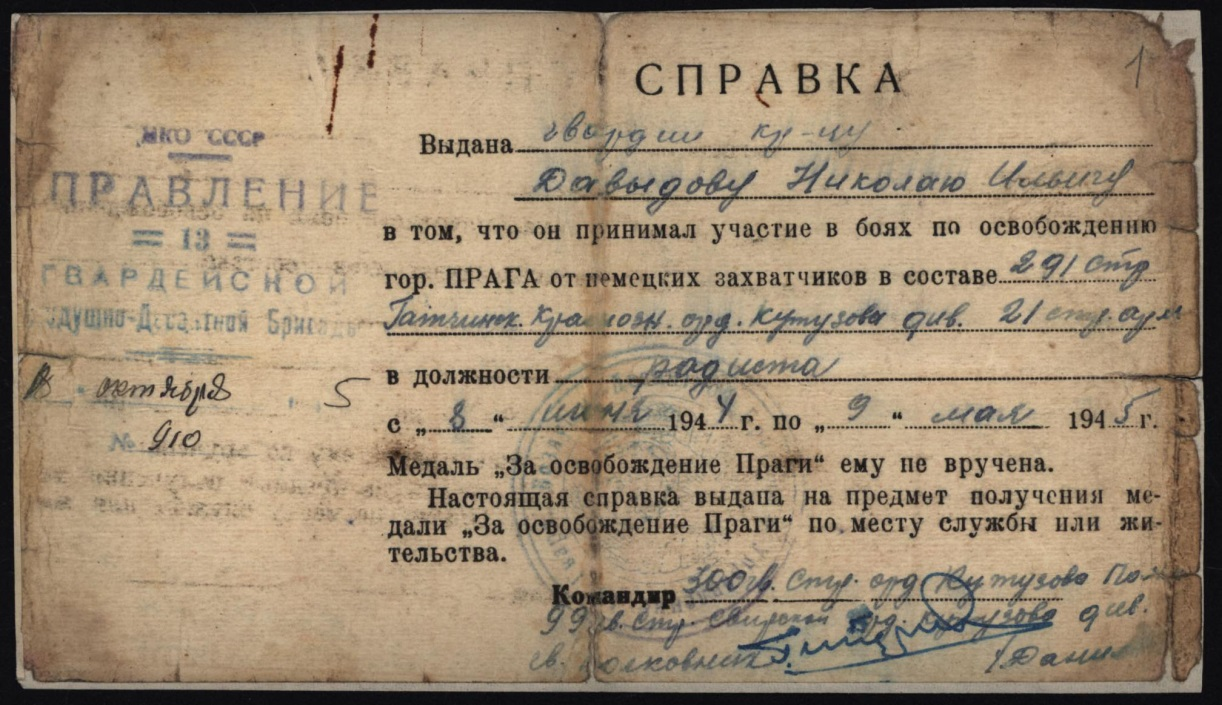 1
СПРАВКА
НКО СССР
ПРАВЛЕНИЕ
= 13 =
ГВАРДЕЙСКОЙ
душно-Десантной Бригады
октября 5
№ 910
Выдана гвардии кр-цу
Давыдову Николаю Ильичу
в том, что он принимал участие в боях по освобождению
гор. ПРАГА от немецких захватчиков в составе 291 стр
Гатчинск. Краснозн. орд. Кутузова див. 21 стр.
в должности радиста
с „8“ июня 1944 г. по „9“ мая 1945 г.
Медаль „За освобождение Праги“ ему не вручена.
Настоящая справка выдана на предмет получения ме-
дали „За освобождение Праги“ по месту службы или жи-
тельства.
Командир 300 гв. стр. орд Кутузова
99 гв. стр. Свирской орд. Кутузова див.
гв. полковник